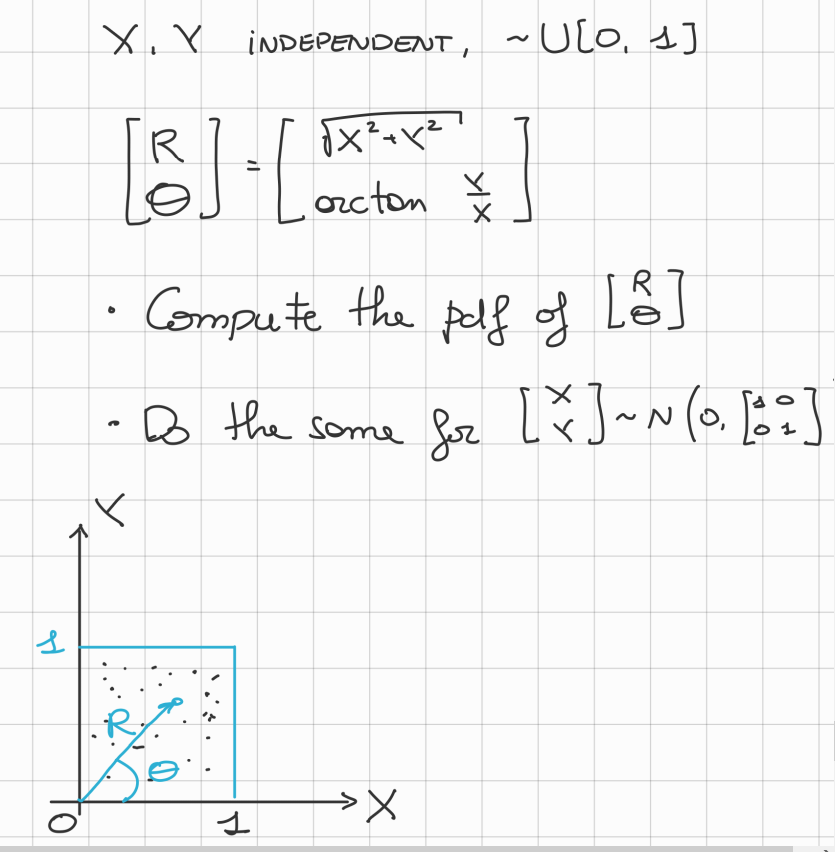 X, Y INDEPENDENT, ~ U[0, 1]
[R Θ] = [√X²+Y² arctan Y/X]
· Compute the pdf of [R Θ]
· Do the same for [X Y] ~ N(0, [1 0 0 1]
Y
1
R
Θ
0 1 X